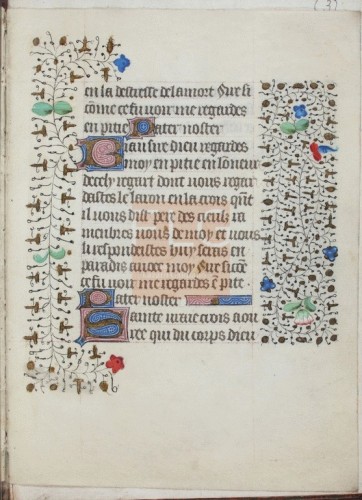 en la destresse de la mort Sire si
cōme ce fu uoir me regardes
en pitie Pater noster
Biau sire dieu regardes
moy en pitie en lōneur
de cely regart dont uous regar
dastes le larron en la crois qnt
il uous dist pere des cieus ia
meubres uous de moy et uous
li respondeistes huy seras en
paradis auoec moy Sire sicōe
ce fu uoir me regardes ē pite
Pater noster
Sainte uraie crois aou
ree qui du corps dieu